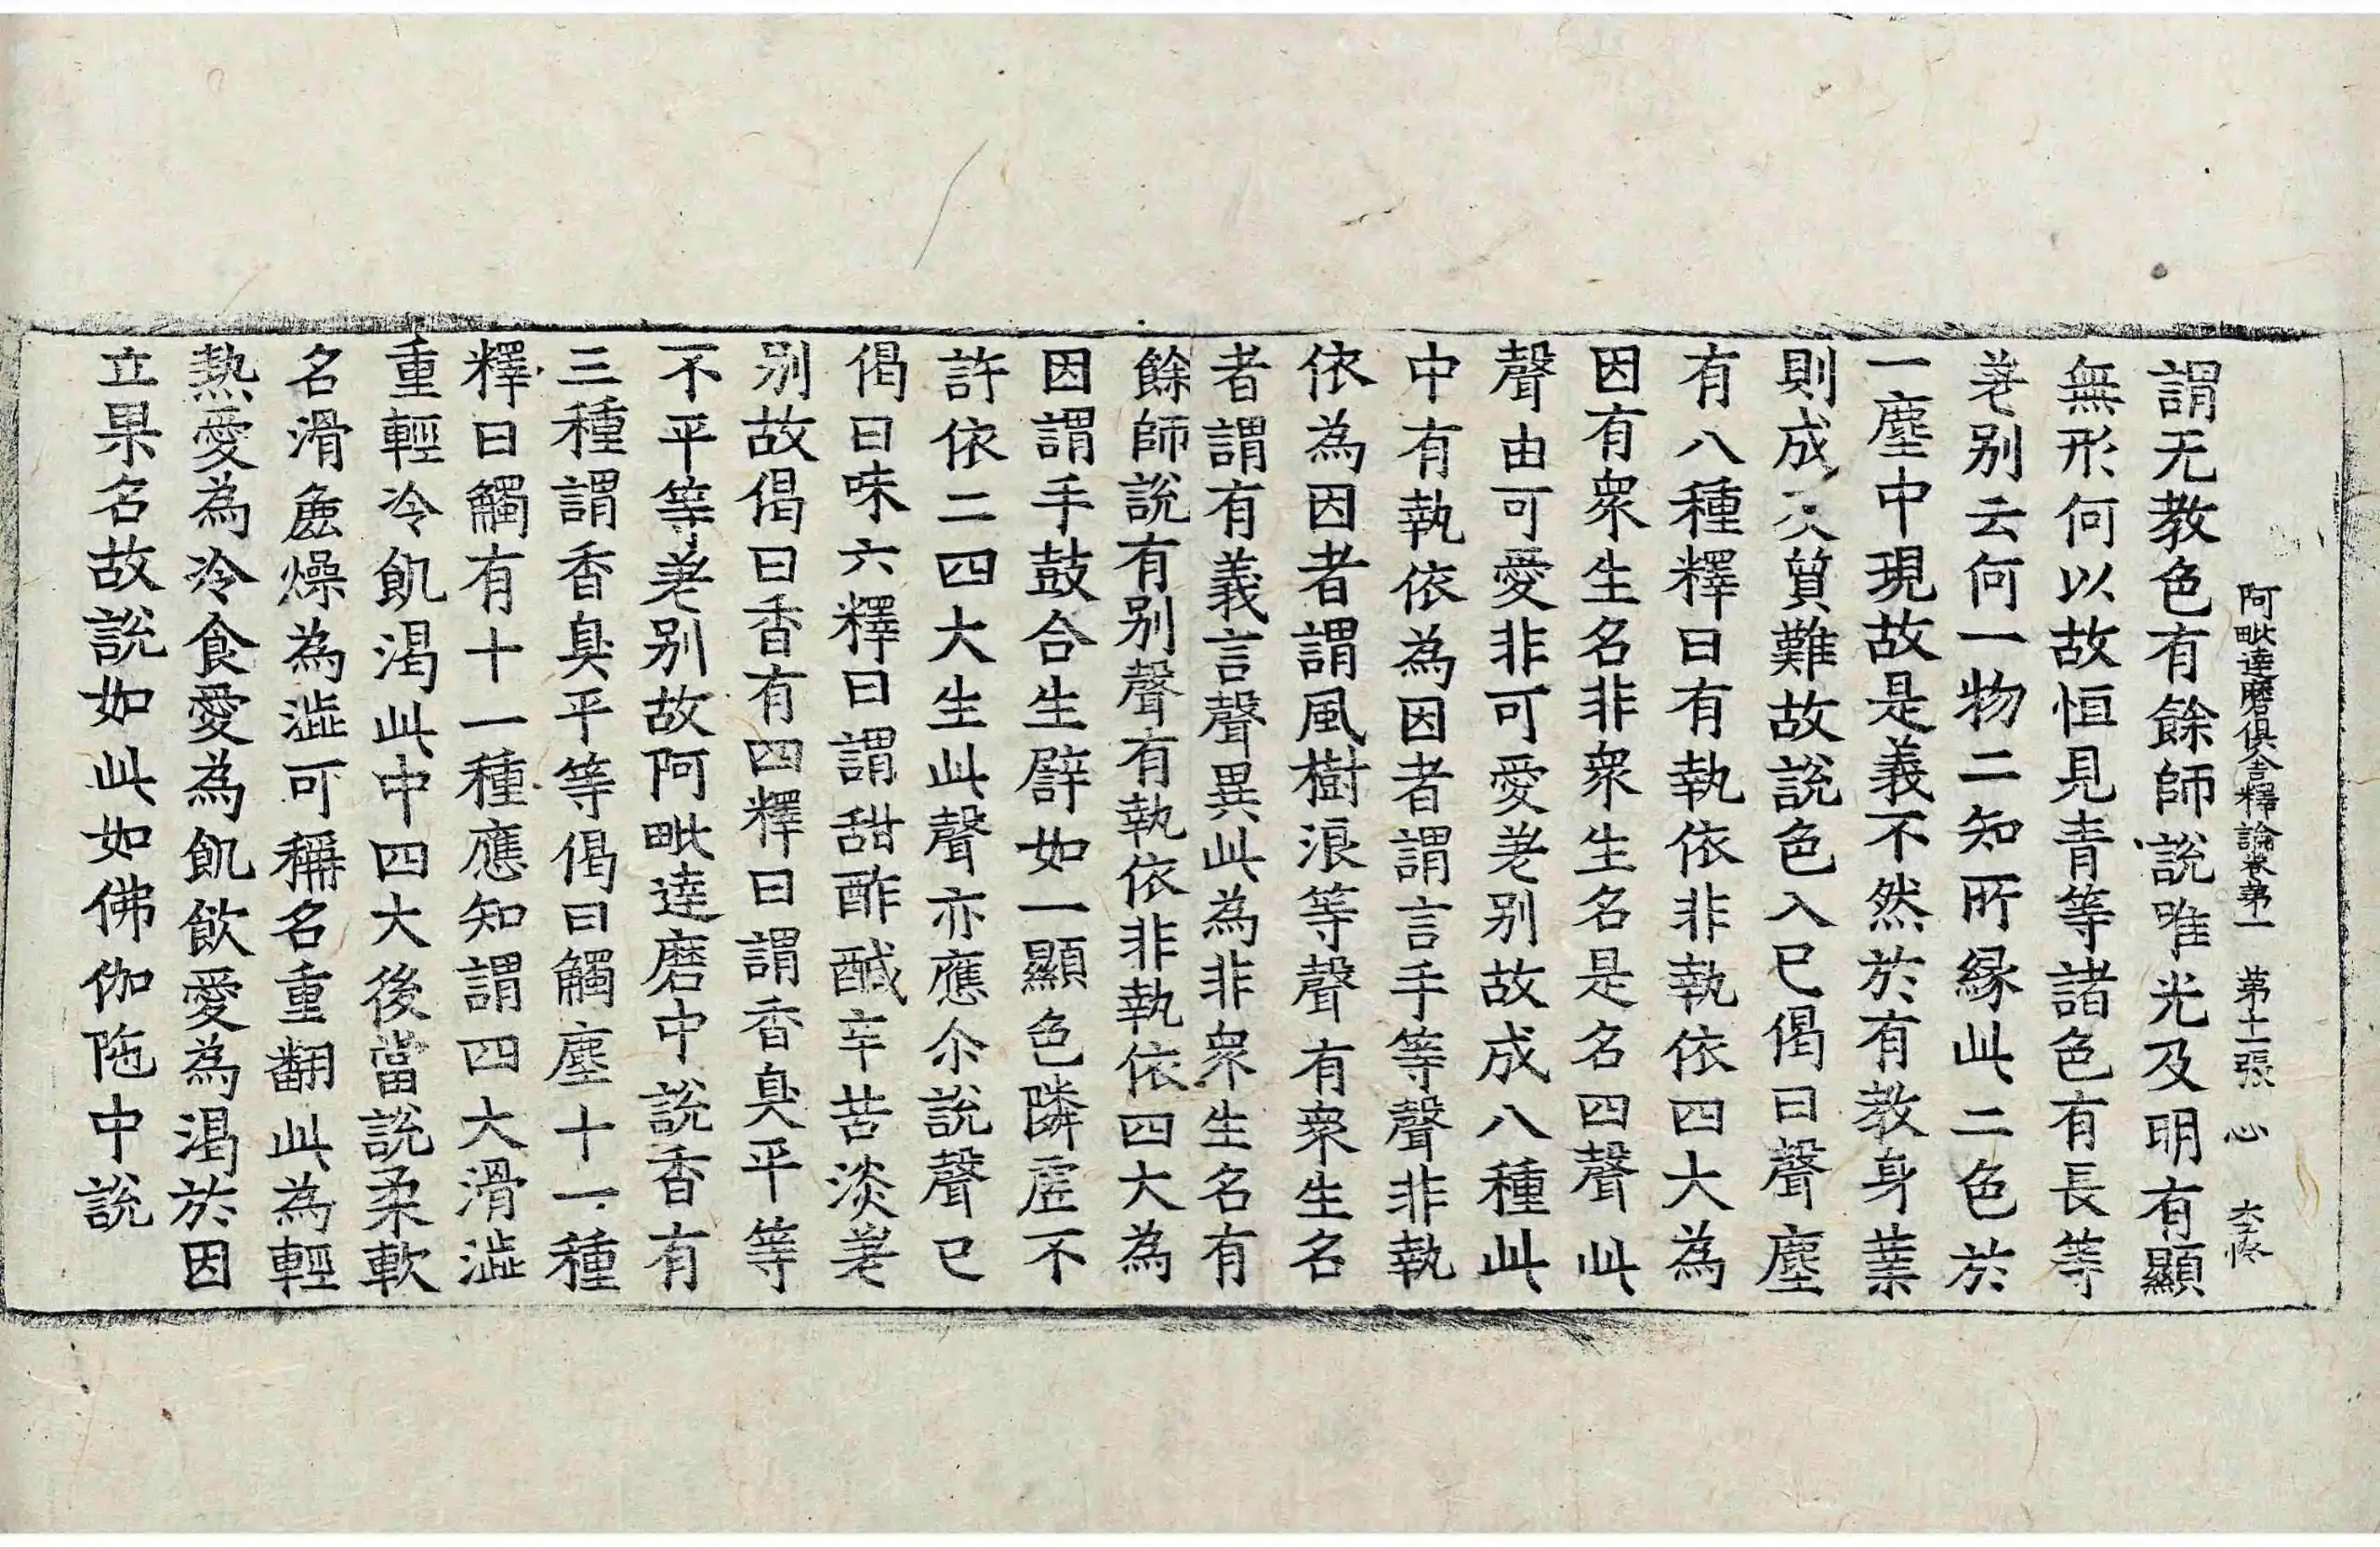 阿毗達磨俱舍釋論卷第一 第十二張 心 李悠
謂无教色有餘師說唯光及明有顯
無形何以故恒見青等諸色有長等
差別云何一物二知所緣此二色於
一塵中現故是義不然於有教身業
則成次質難故說色入已偈曰聲塵
有八種釋曰有執依非執依四大為
因有眾生名非眾生名是名四聲此
聲由可愛非可愛差別故成八種此
中有執依為因者謂言手等聲非執
依為因者謂風樹浪等聲有眾生名
者謂有義言聲異此為非眾生名有
餘師說有別聲有執依非執依四大為
因謂手鼓合生譬如一顯色隣虛不
許依二四大生此聲亦應尒說聲已
偈曰味六釋曰謂甜酢醎辛苦淡差
別故偈曰香有四釋曰謂香臭平等
不平等差別故阿毗達磨中說香有
三種謂香臭平等偈曰觸塵十一種
釋曰觸有十一種應知謂四大滑澁
重輕冷飢渴此中四大後當說柔軟
名滑麁燥為澁可稱名重翻此為輕
熱愛為冷食愛為飢飲愛為渴於因
立果名故說如此如佛伽陁中說